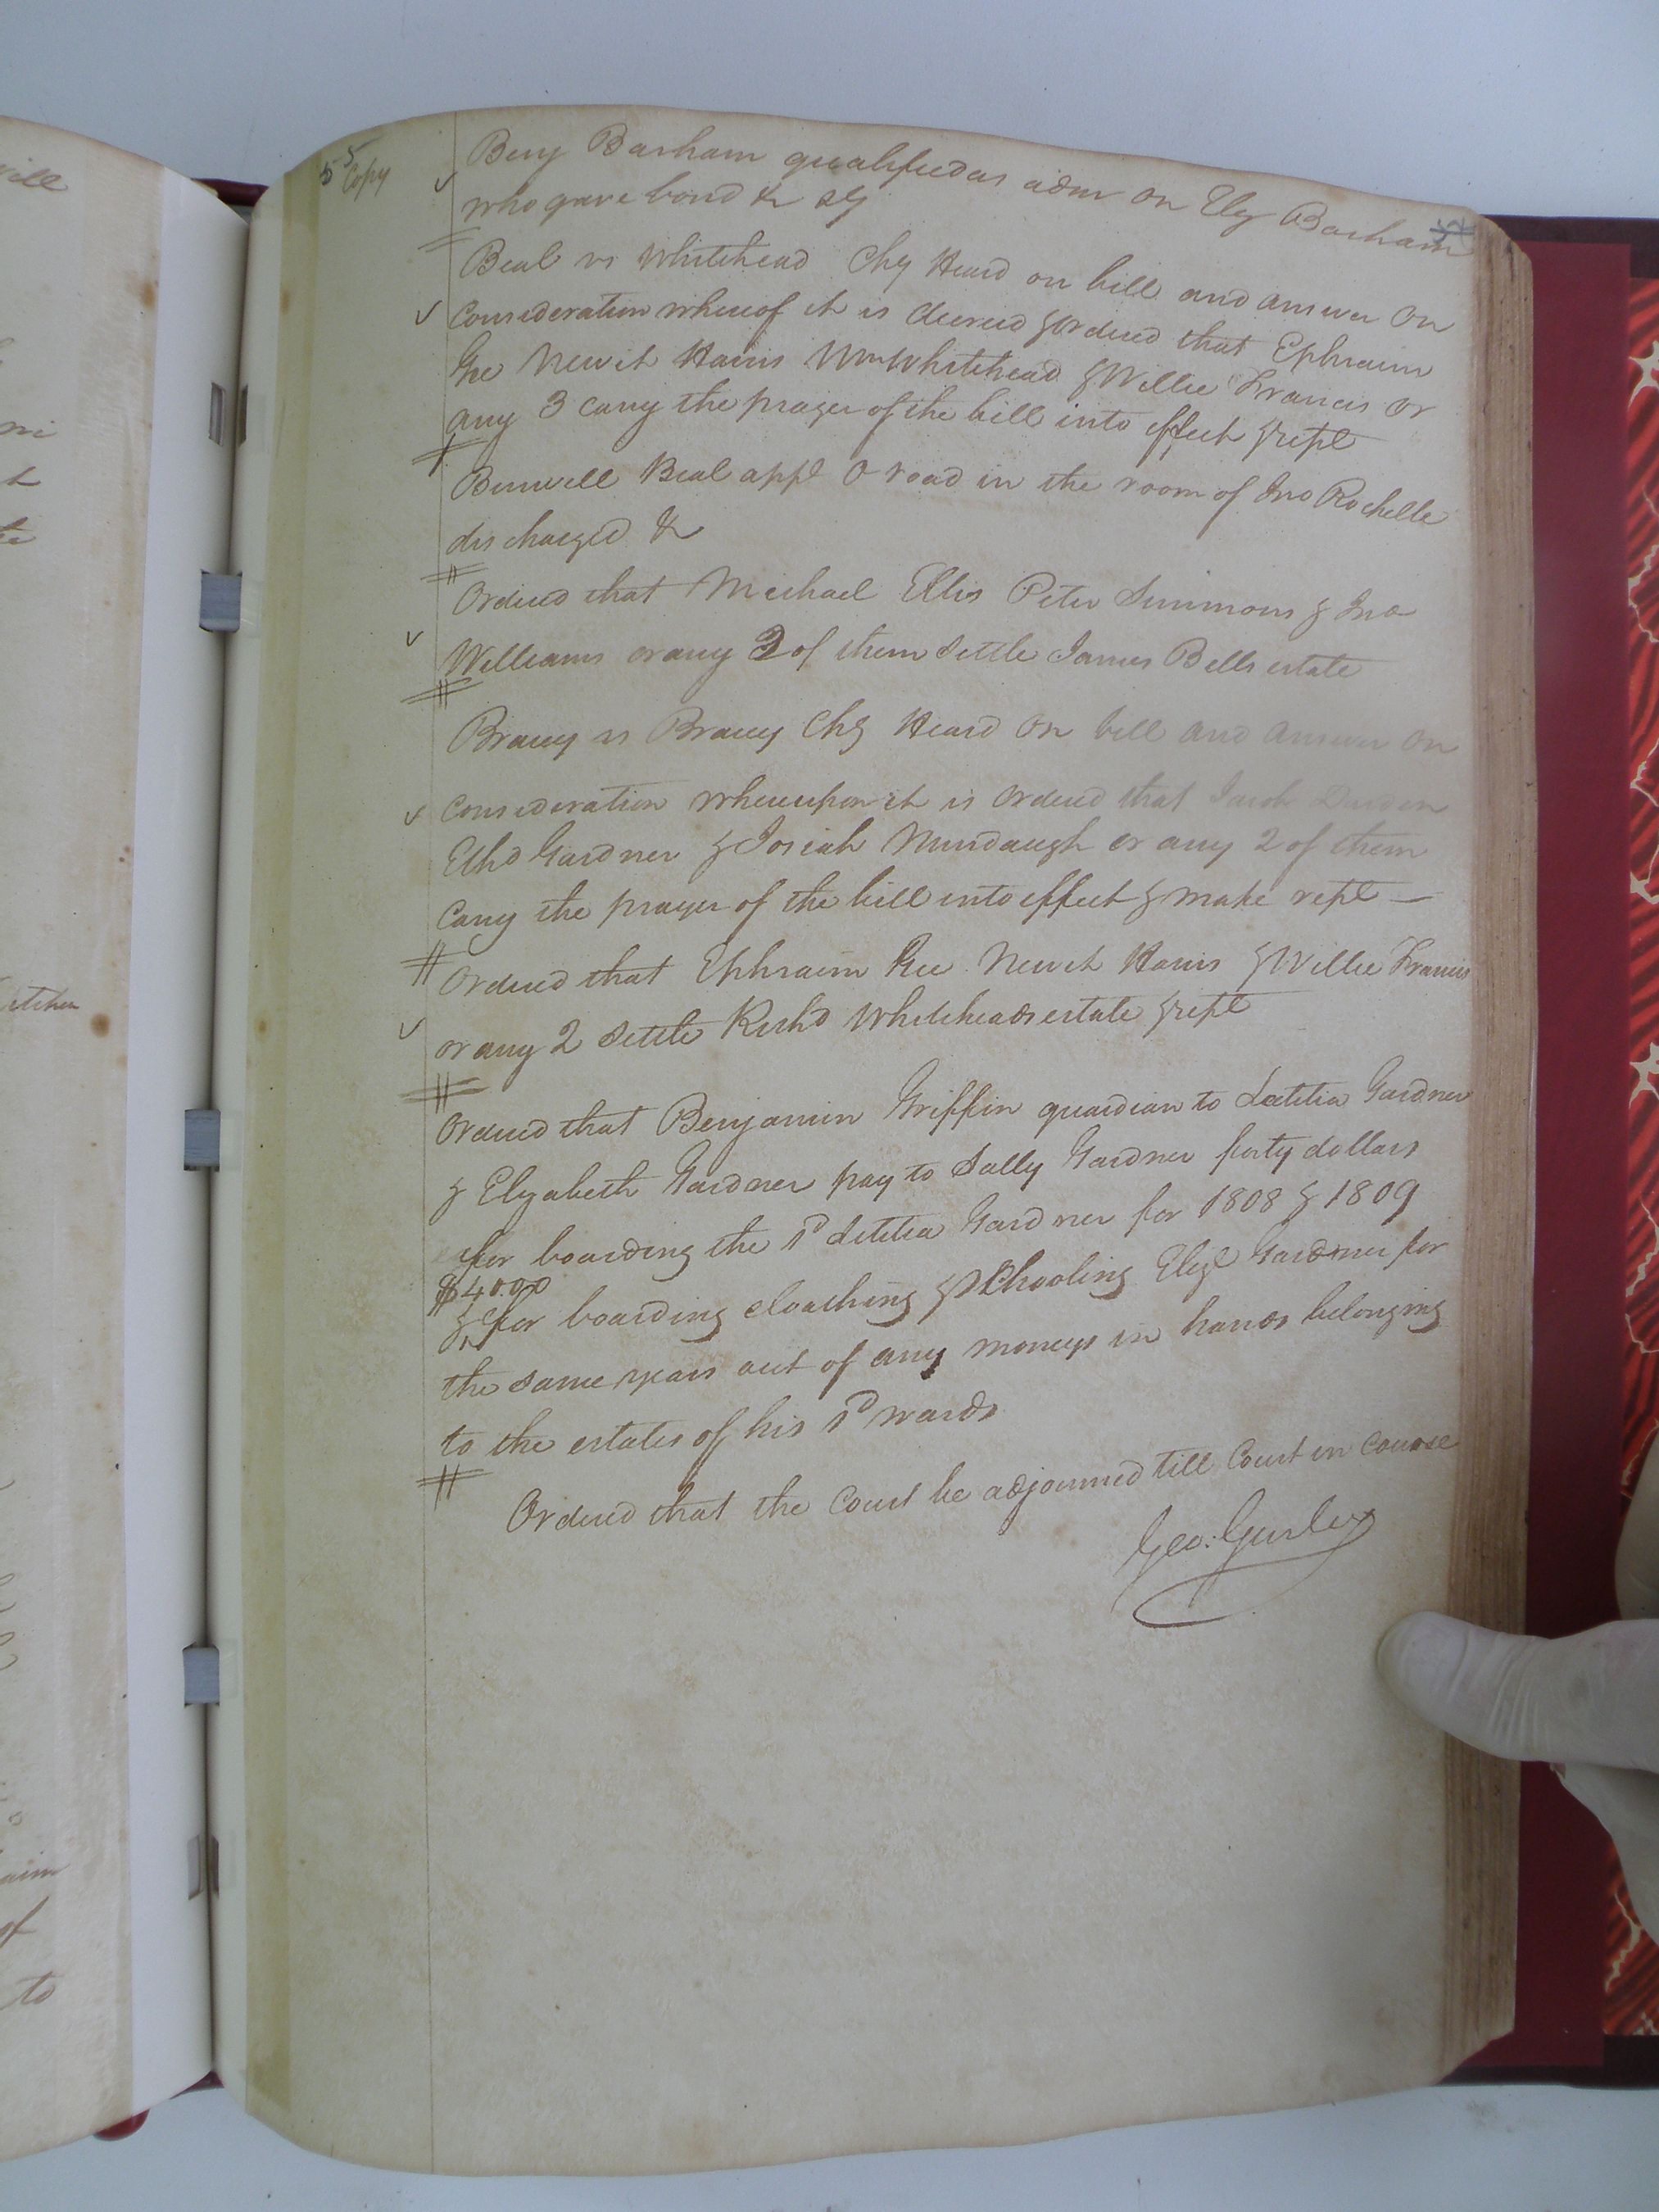 5 5 Copy
Benj Barham qualified as adm on Ely Barham
who gave bond &c
Beal vs Whitehead Chy Heard on bill and answer On
Consideration whereof it is decreed & Ordered that Ephraim
Gee Newit Harris Wm Whitehead & Willie Francis or
any 3 carry the prayer of the bill into effect & rept
Burwell Beal appt O road in the room of Jno Rochelle
discharged &c
Ordered that Michael Ellis Peter Simmons & Jno
Williams or any 2 of them Settle James Bells estate
Bracey vs Bracey Chy Heard On bill and answer On
Consideration whereupon it is Ordered that Jacob Darden
Ethd Gardner & Josiah Murdaugh or any 2 of them
Carry the prayer of the bill into effect & make rept —
Ordered that Ephraim Gee Newit Harris & Willie Francis
or any 2 Settle Richd Whiteheads estate & rept
Ordered that Benjamin Griffin guardian to Letitia Gardner
& Elizabeth Gardner pay to Sally Gardner forty dollars
for boarding the sd Letitia Gardner for 1808 & 1809
$40.00
& for boarding cloathing & schooling Elizt Gardner for
the same years out of any moneys in hands belonging
to the estates of his sd wards
Ordered that the Court be adjourned till Court in Course
Geo: Gurley
will
to
of